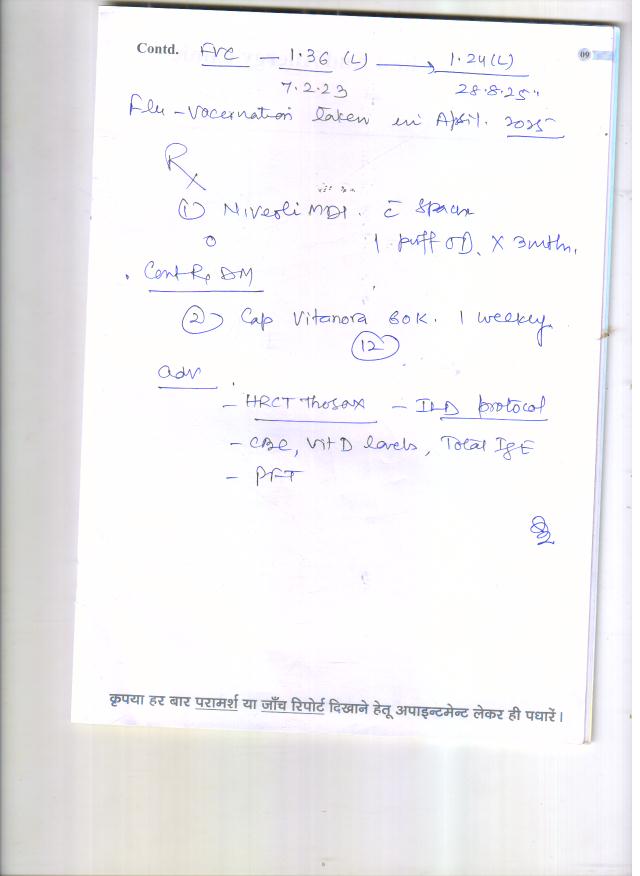 Contd. FVC — 1.36 (L) → 1.24 (L) 09
7.2.23 28.8.25
Flu-Vaccination taken in April. 2025
Rx
① Niveoli MDI. c̄ Spacer
1 puff OD. X 3mths.
Cont Rx DM
② Cap Vitanora 60K. 1 weekly.
⑫
adv
- HRCT Thorax - ILD protocol
- CBC, Vit D levels, Total IgE
- PFT
कृपया हर बार परामर्श या जाँच रिपोर्ट दिखाने हेतू अपाइन्टमेन्ट लेकर ही पधारें।